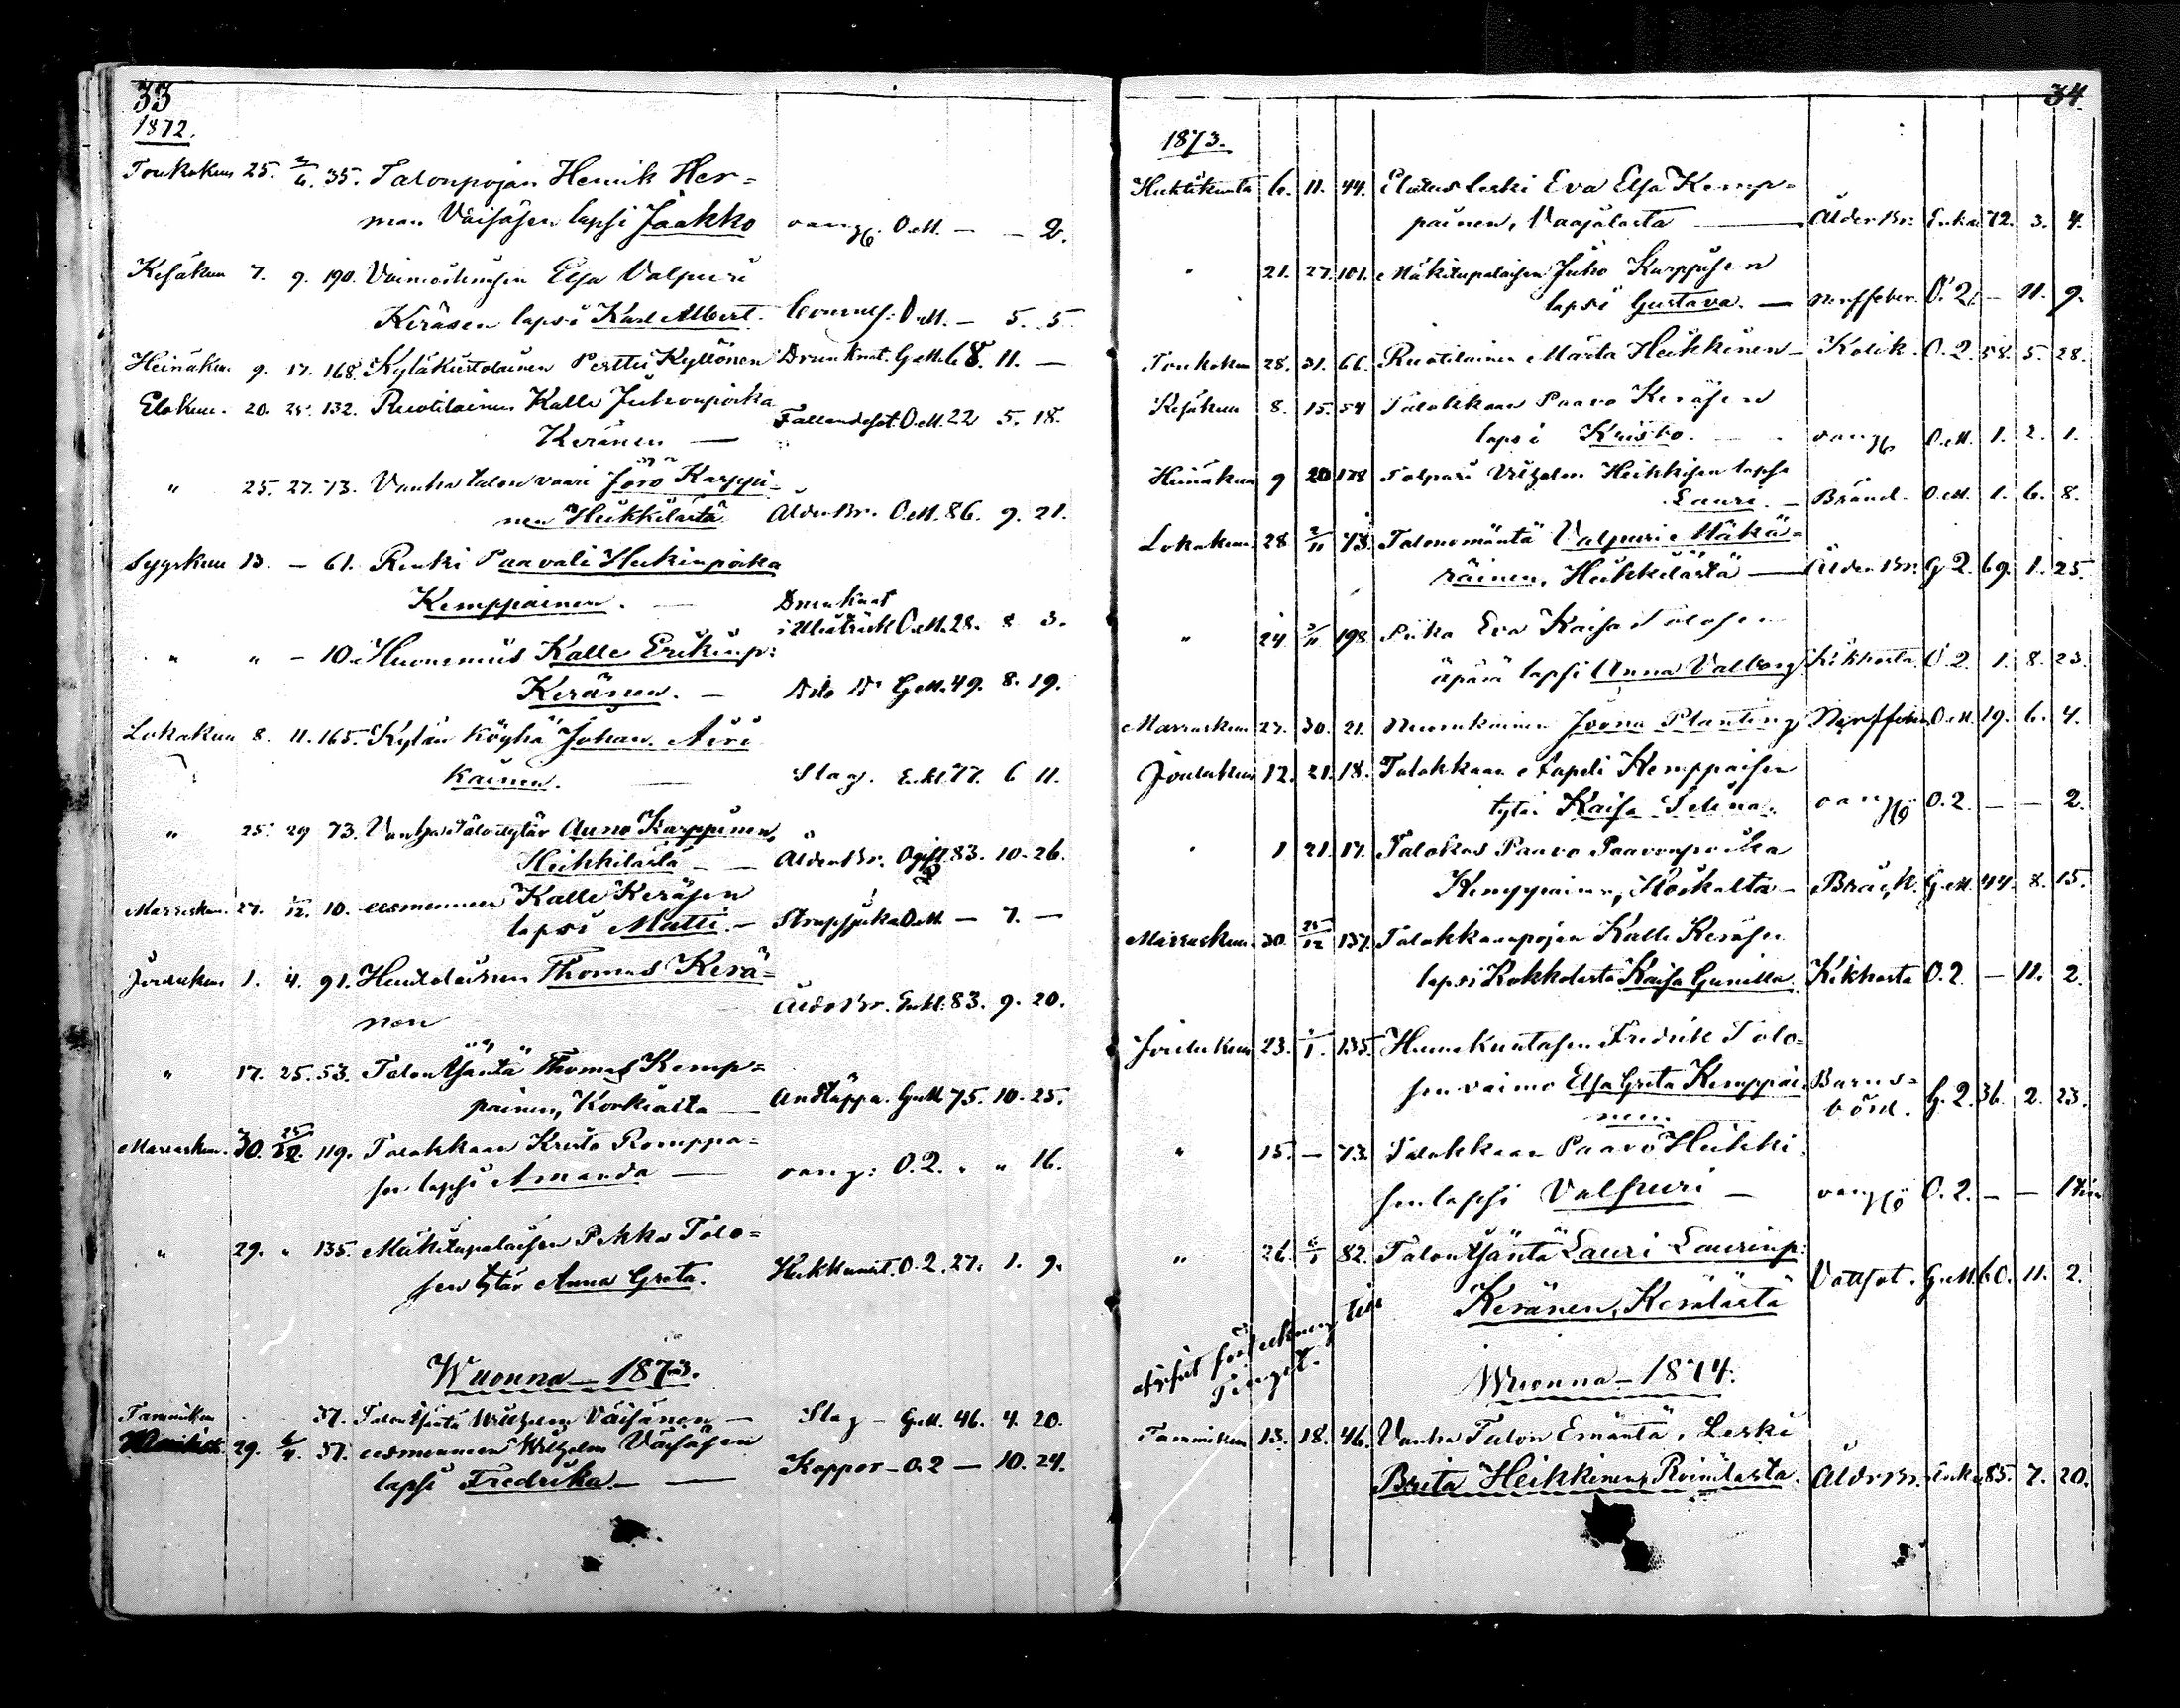 33
1872.
Toukokuu 25. 2/6. 35. Talonpojan Henrik Her=
man Väisäsen lapsi Jaakko vangg. O.M. — — 2.
Kesäkuu 7. 9. 190. Elsa Valpuri
Keräsen lapsi Karl Albert. O.M. — 5. 5.
Heinäkuu 9. 17. 168. Pertti Kyllönen Drunknat. G.M. 68. 11. —
Elokuu. 20. 25. 132. Ruotilainen Kalle Juhonpoika
Keränen — Fallandesot. O.M. 22 5. 18.
" 25. 27. 73. Vanha talon vaari Jörö Karppi-
nen Heikkilästä Ålder Br. O.M. 86. 9. 21.
Syyskuu 13. — 61. Renki Paavali Heikinpoika
Kemppainen. — Drunknat
i Uleåträsk O.M. 28. 8 3.
" " — 10. Huonemies Kalle Erikinp:
Keränen. — Dito Do G.M. 49. 8. 19.
Lokakuu 8. 11. 165. Kylän köyhä Johan Äiri
käinen. — Slag. Enkl. 77. 6 11.
" 25. 29 73. Vanha Talontytär Auno Karppinen,
Heikkilästä — Ålder Br. Ogift 83. 10. 26.
2
Marraskuu. 27. 1/12. 10. Kalle Keräsen
lapsi Matti. — Strupsjuka O.M — 7. —
Joulukuu 1. 4. 91. Thomas Kerä=
nen Ålder Br. Enkl. 83. 9. 20.
" 17. 25. 53. Talon Isäntä Thomas Kemp=
painen, Korkialta — Andtäppa. G.M 75. 10. 25.
Marraskuu. 30. 25/12. 119. Talokkaan Krista Romppa=
sen lapsi Amanda — vangg: O.2. " " 16.
" 29. " 135. Mäkitupalaisen Pekka Tolo=
sen tytär Anna Greta. O.2. 27. 1. 9.
Wuonna — 1873.
Tammikuu 37. Talon Isäntä Wilhelm Väisänen — Slag — G.M. 46. 4. 20.
29. 6/4. 37. Wilhelm Väisäsen
lapsi Fredrika. — Koppor — O.2 — 10. 24.
34.
1873.
Huhtikuuta 6. 11. 44. Elätus leski Eva Elsa Kemp=
painen, Vaajalasta — Ålder Br. Enka 72. 3. 4.
" 21. 27. 101. Mäkitupalaisen Juho Karppisen
lapsi Gustava. — Nerffeber. O. 2. — 11. 9.
Toukokuu 28. 31. 66. Ruotilainen Märta Heikkinen — Kolik. O. 2. 58. 5. 28.
Kesäkuu 8. 15. 54 Talokkaan Paavo Keräsen
lapsi Kristo. — vangg O.M. 1. 2. 1.
Heinäkuu 9 20 178 Wilhelm Heikkisen lapsi
Lauri. — Bränd. O.M. 1. 6. 8.
Lokakuu. 28 2/11 73. Talonemäntä Valpuri Mäkä=
räinen, Heikkilästä — Ålder Br. G 2. 69. 1. 25.
" 24 2/11 198. Piika Eva Kaisa Tolosen
äpärä lapsi Anna Valborg. Kikhosta. O 2. 1. 8. 23.
Marraskuu 27. 30. 21. Joona Planting Nerffeber O.M. 19. 6. 4.
Joulukuu 12. 21. 18. Talokkaan Tapeli Kemppaisen
tytär Kaisa Selina. vangg O.2. — — 2.
" 1 21. 17. Talokas Paavo Paavonpoika
Kemppainen, Koskalta — Bråck. G.M. 44. 8. 15.
Marraskuu. 30. 25/12 137. Talokkaanpojan Kalle Keräsen
lapsi Kokkolasta Kaisa Gunilla. Kikhosta O.2 — 11. 2
Joulukuu 23. 1/1. 135. Fredrik Tolo=
sen vaimo Elsa Greta Kemppai- Barns=
nen. börd. G. 2. 36. 2. 23.
" 15. — 73. Talokkaan Paavo Heikki
sen lapsi Valpuri — vangg O. 2. — — 1
" 26. 6/1 82. Talon Isäntä Lauri Laurinp:
Keränen, Kerälästä Vattsot. G.M. 60. 11. 2.
förteckning till
Tinget.
Wuonna — 1874.
Tammikuu 13. 18. 46. Vanha Talon Emäntä, Leski
Brita Heikkinen, Roinilasta. Ålder Br. Enka 85. 7. 20.